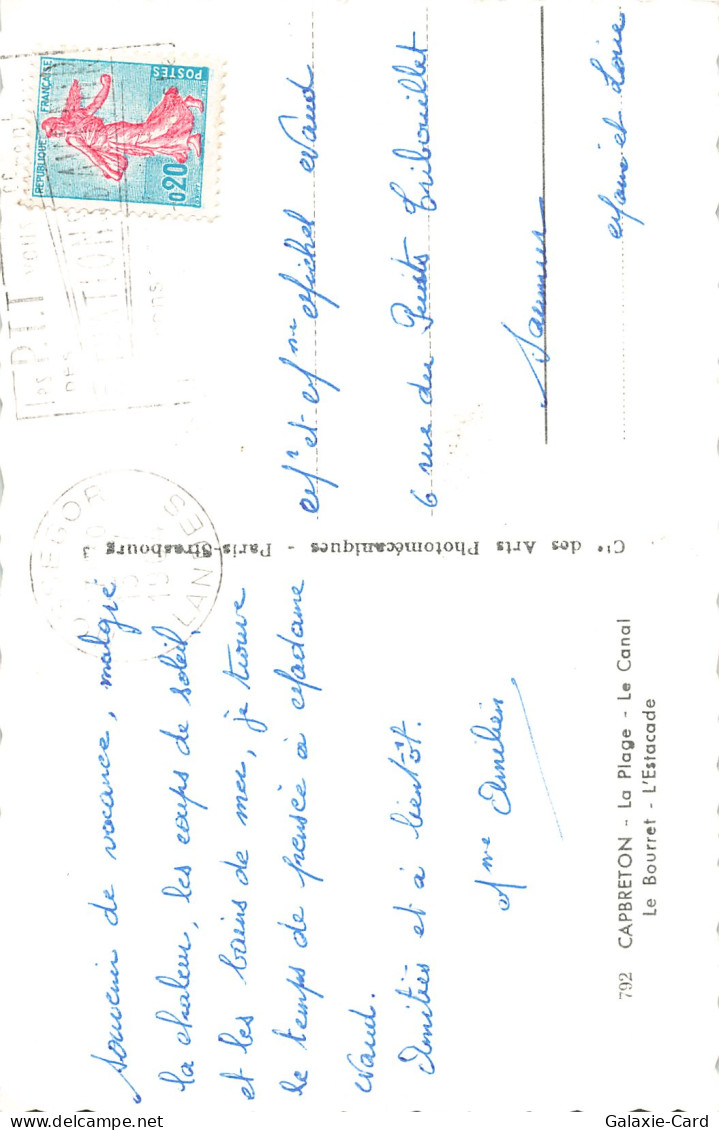 souvenir de vacance, malgré
la chaleur, les coups de soleil,
et les bains de mer, je trouve
le temps de pensée à Madame
Naud.
Amitiés et à bientôt.
Mme
792 CAPBRETON - La Plage - Le Canal
Le Bourret - L'Estacade
Cie des Arts Photomécaniques - Paris-Strasbourg 3
REPUBLIQUE FRANÇAISE
POSTES
0,20
P.T.T
LANDES
Mr et Mme Michel Naud
6 rue du Puits Tribouillet
Saumur
Maine et Loire
Galaxie-Card